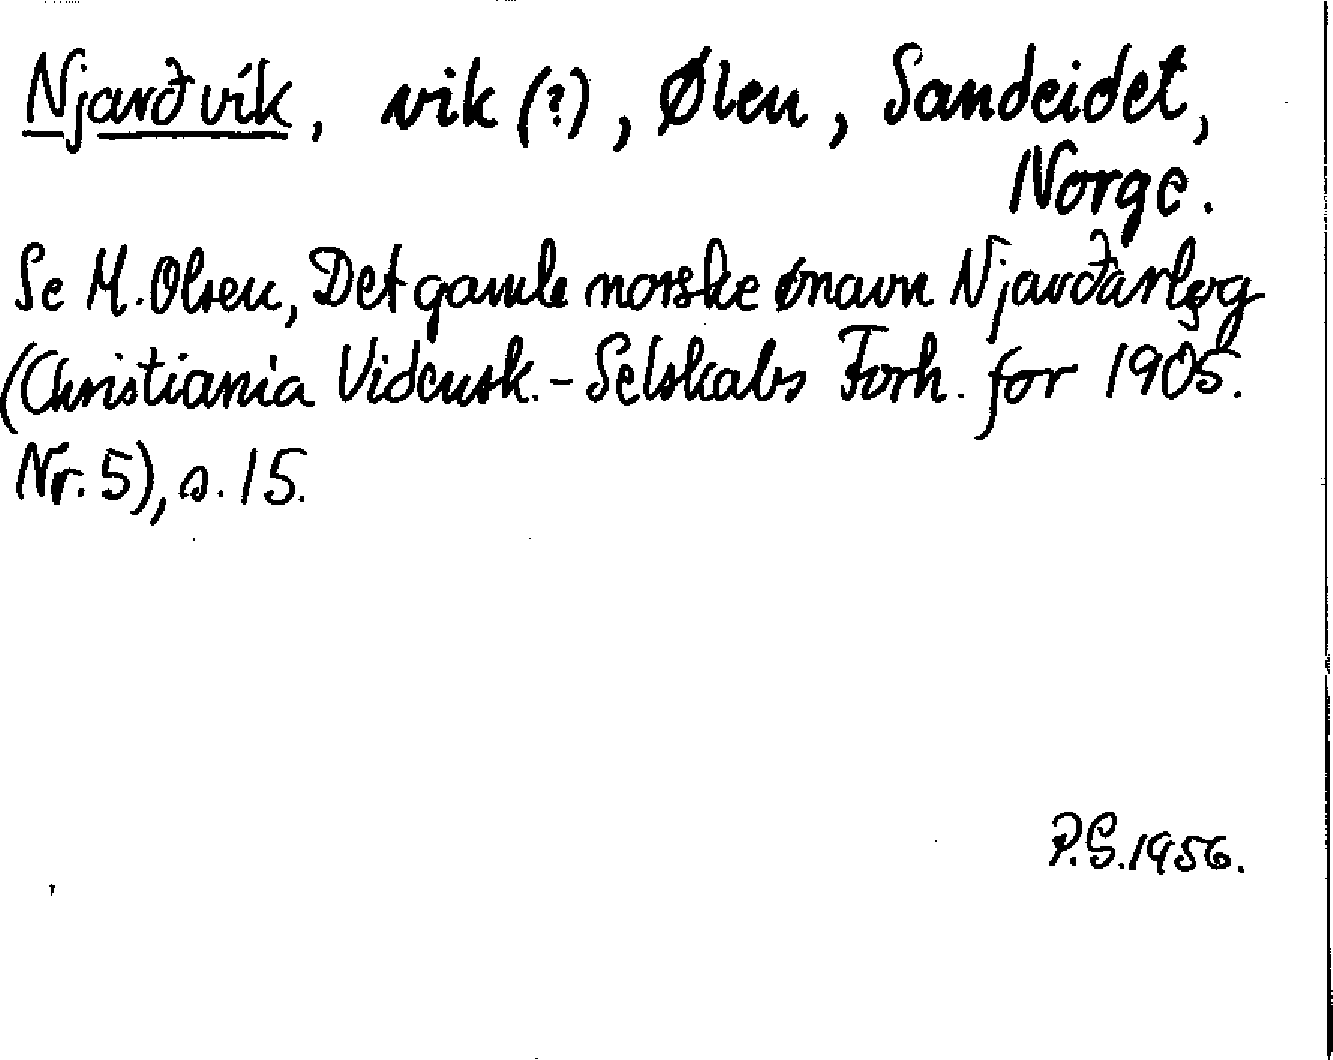 Njarðvík, vik (?), Ølen, Sandeidet,
Norge.
Se M. Olsen, Det gamle norske ønavn Njarðarlǫg
(Christiania Vidensk.-Selskabs Forh. for 1905.
Nr. 5), s. 15.
P.S. 1956.